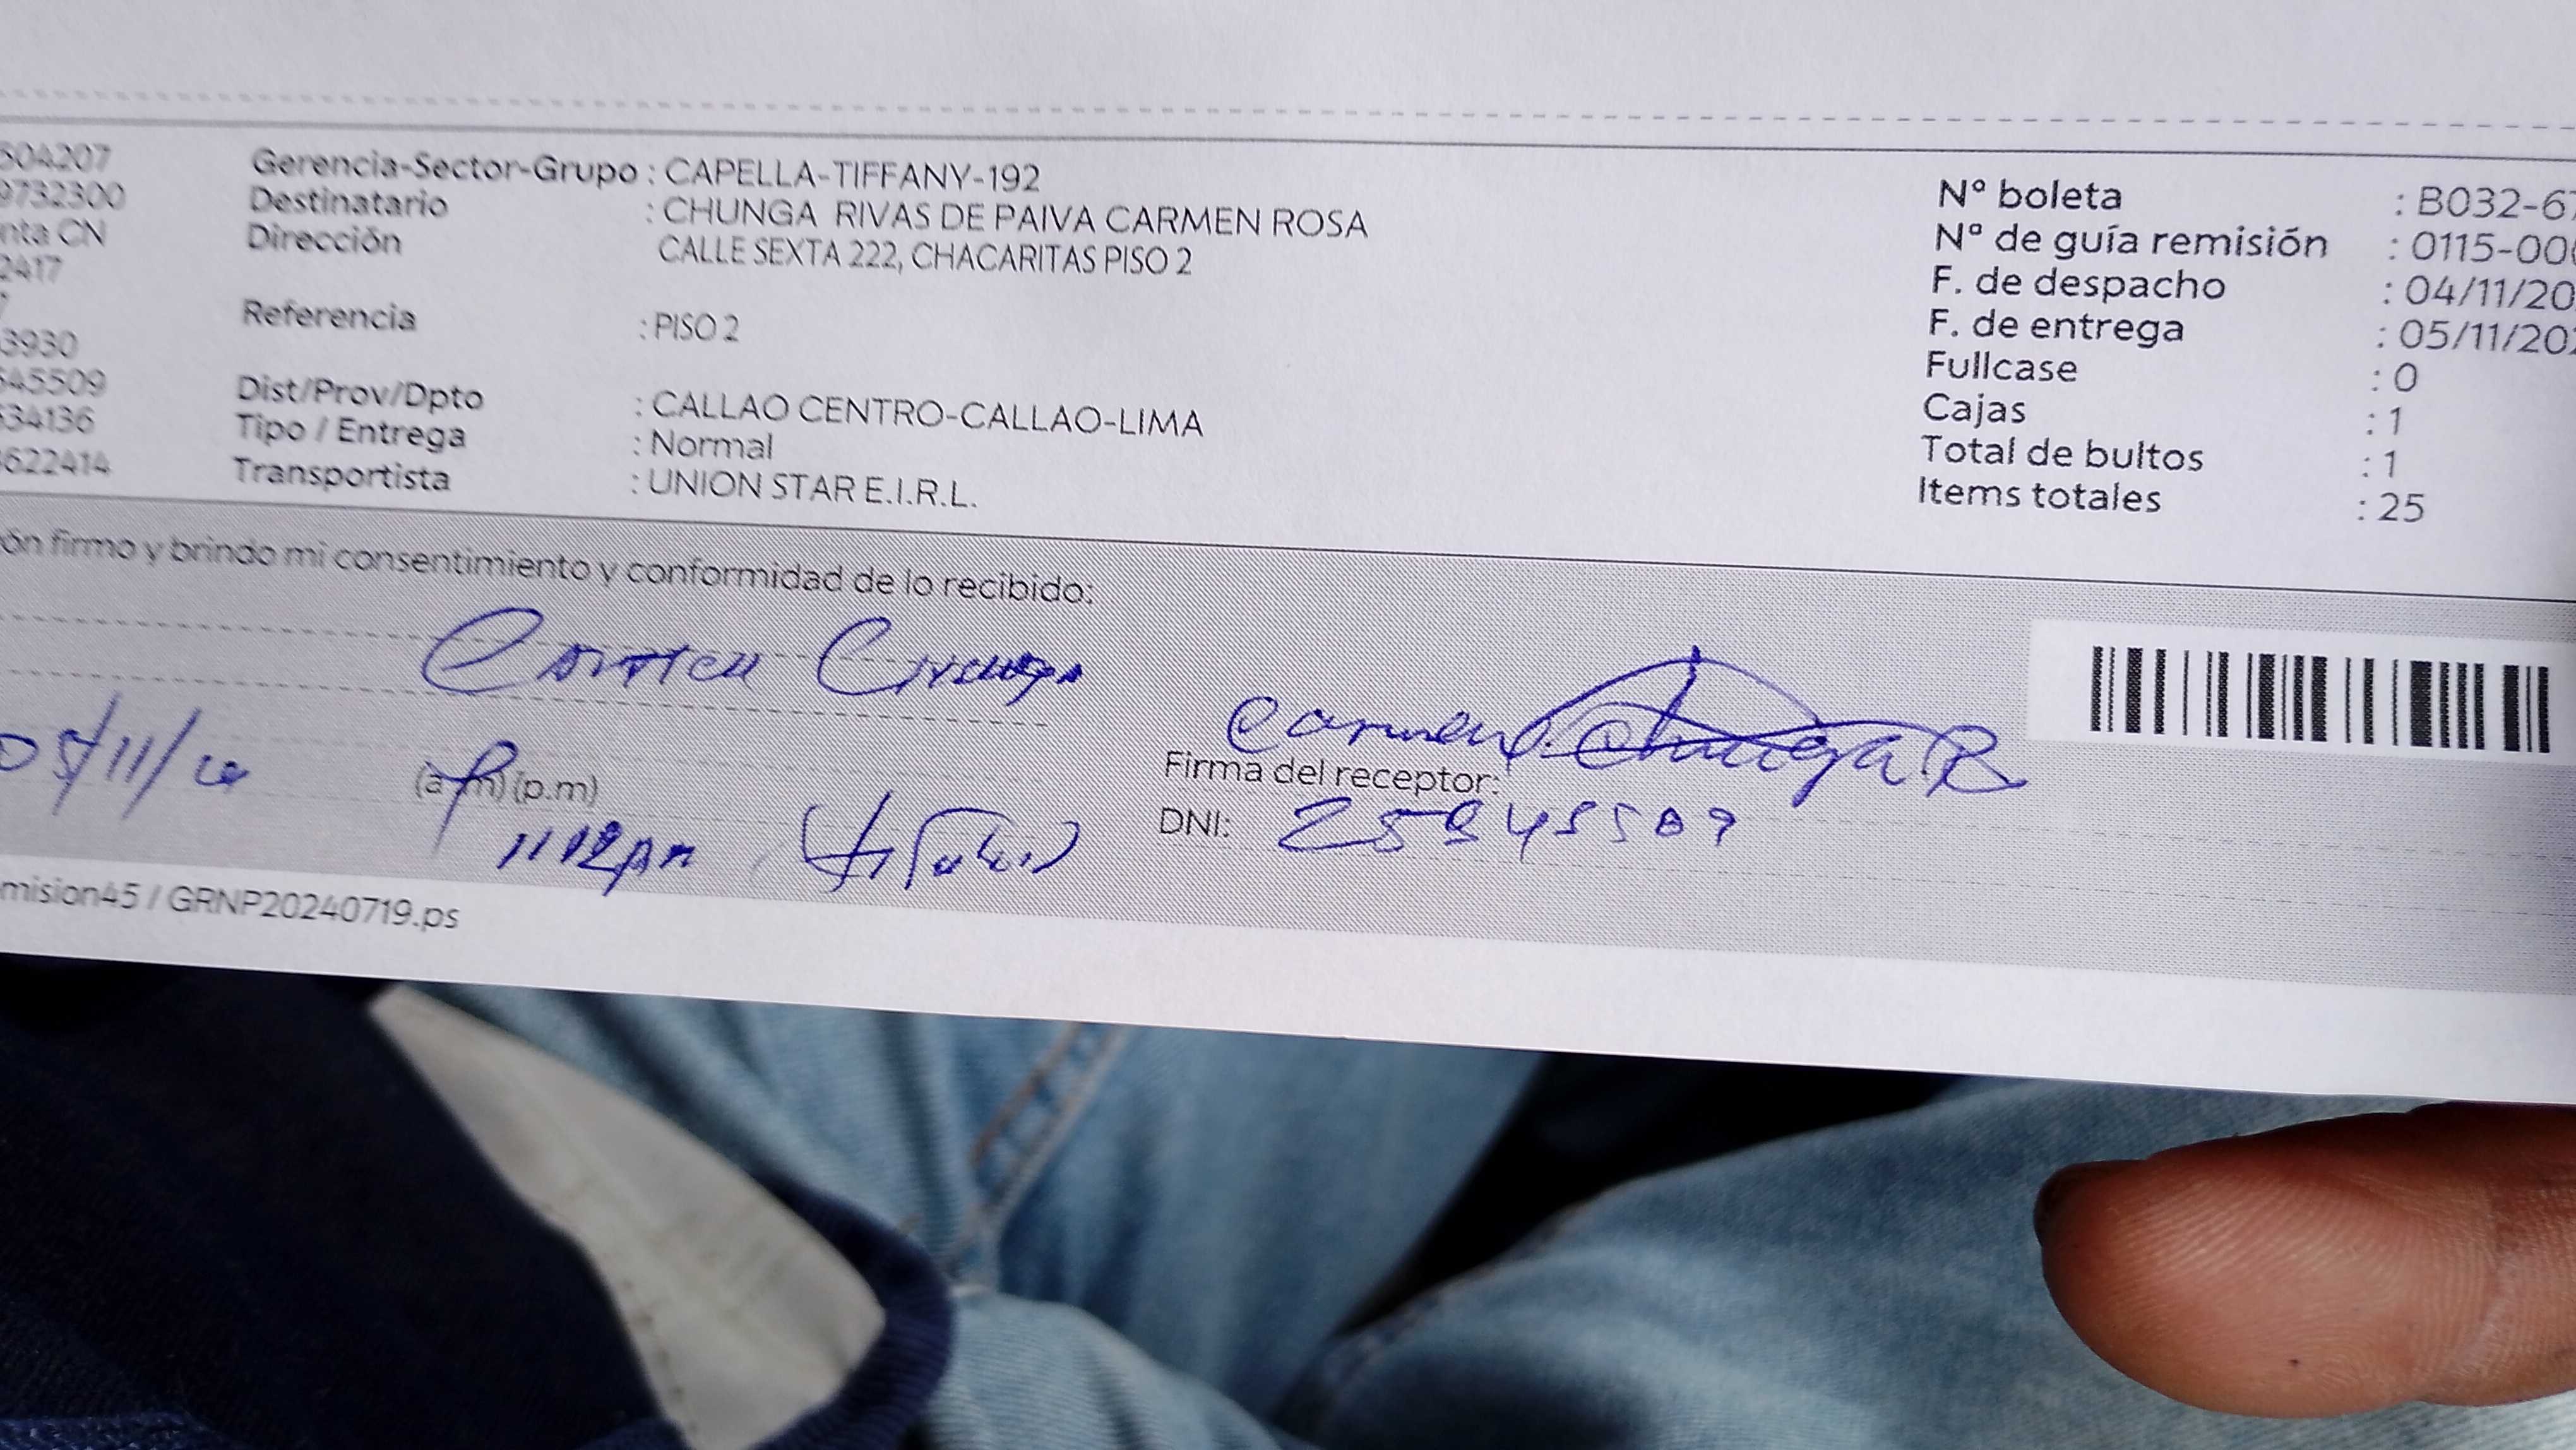 504207 Gerencia-Sector-Grupo : CAPELLA-TIFFANY-192
9732300 Destinatario : CHUNGA RIVAS DE PAIVA CARMEN ROSA
nta CN Dirección CALLE SEXTA 222, CHACARITAS PISO 2
2417
Referencia : PISO 2
3930
545509 Dist/Prov/Dpto : CALLAO CENTRO-CALLAO-LIMA
534136 Tipo / Entrega : Normal
622414 Transportista : UNION STAR E.I.R.L.
N° boleta : B032-67
N° de guía remisión : 0115-000
F. de despacho : 04/11/20
F. de entrega : 05/11/202
Fullcase : 0
Cajas : 1
Total de bultos : 1
Items totales : 25
ón firmo y brindo mi consentimiento y conformidad de lo recibido:
Carmen Chunga
Carmen Chunga R
05/11/ (a.m) (p.m) Firma del receptor:
DNI:
mision45 / GRNP20240719.ps